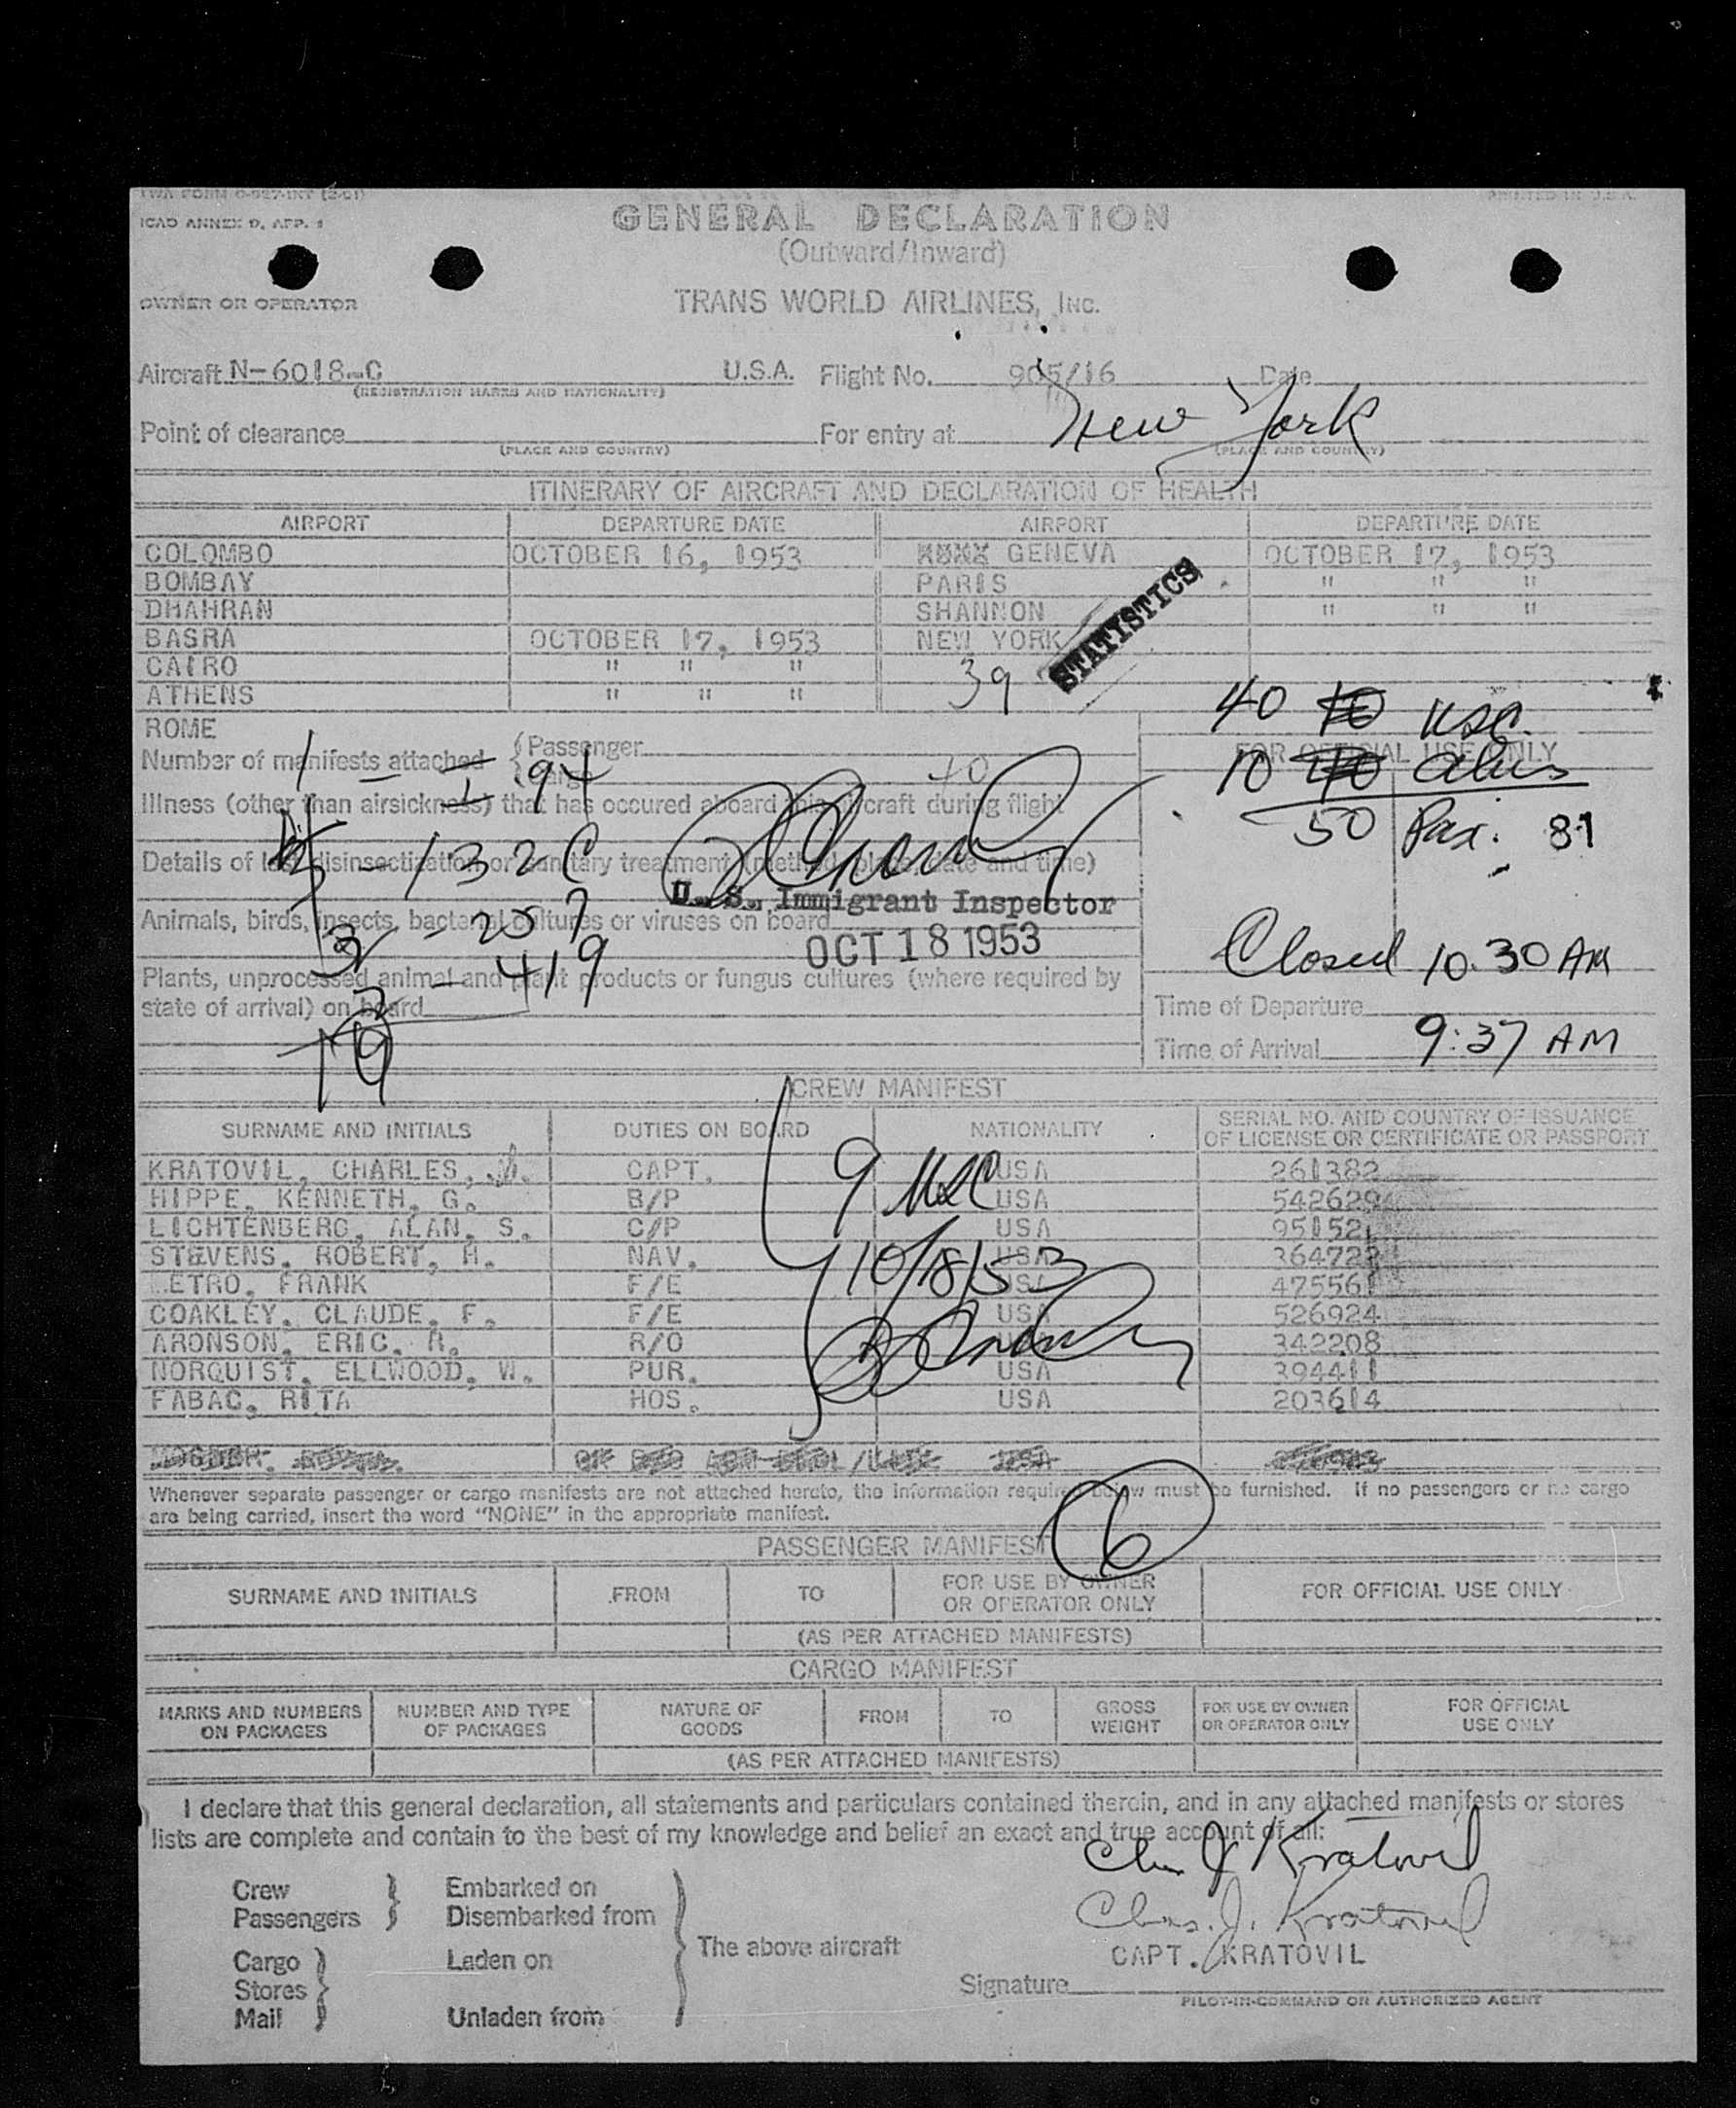 TWA FORM
PRINTED IN U.S.A.
ICAO ANNEX 9, APP. 1
GENERAL DECLARATION
(Outward/Inward)
OWNER OR OPERATOR
TRANS WORLD AIRLINES, INC.
Aircraft N-6018-C U.S.A. Flight No. 905/16 Date
(REGISTRATION MARKS AND NATIONALITY)
Point of clearance For entry at New York
(PLACE AND COUNTRY) (PLACE AND COUNTRY)
ITINERARY OF AIRCRAFT AND DECLARATION OF HEALTH
AIRPORT DEPARTURE DATE AIRPORT DEPARTURE DATE
COLOMBO OCTOBER 16, 1953 GENEVA OCTOBER 17, 1953
BOMBAY PARIS " " "
DHAHRAN SHANNON " " "
BASRA OCTOBER 17, 1953 NEW YORK
STATISTICS
CAIRO " " " 39
ATHENS " " "
ROME
40 USC
Number of manifests attached { Passenger
FOR OFFICIAL USE ONLY
10 aliens
1 - 94
Illness (other than airsickness) that has occured aboard this aircraft during flight
50 Pax. 81
Details of last disinsectization or sanitary treatment (method, place, date and time)
- 132C
U. S. Immigrant Inspector
Animals, birds, insects, bacterial cultures or viruses on board
- 257
OCT 18 1953
Closed 10.30 AM
- 419
Plants, unprocessed animal and plant products or fungus cultures (where required by
state of arrival) on board
Time of Departure
Time of Arrival 9:37 AM
CREW MANIFEST
SURNAME AND INITIALS DUTIES ON BOARD NATIONALITY SERIAL NO. AND COUNTRY OF ISSUANCE
OF LICENSE OR CERTIFICATE OR PASSPORT
KRATOVIL, CHARLES, J. CAPT. USA 261382
HIPPE, KENNETH, G. B/P USA 542629
9 USC
LICHTENBERG, ALAN, S. C/P USA 95152
STEVENS, ROBERT, H. NAV. USA 364722
10/18/53
LETRO, FRANK F/E USA 475561
COAKLEY, CLAUDE, F. F/E USA 526924
ARONSON, ERIC, R. R/O 342208
NORQUIST, ELLWOOD, W. PUR. USA 394411
FABAC, RITA HOS. USA 203614
Whenever separate passenger or cargo manifests are not attached hereto, the information required below must be furnished. If no passengers or no cargo
are being carried, insert the word "NONE" in the appropriate manifest.
6
PASSENGER MANIFEST
SURNAME AND INITIALS FROM TO FOR USE BY OWNER OR OPERATOR ONLY FOR OFFICIAL USE ONLY
(AS PER ATTACHED MANIFESTS)
CARGO MANIFEST
MARKS AND NUMBERS ON PACKAGES NUMBER AND TYPE OF PACKAGES NATURE OF GOODS FROM TO GROSS WEIGHT FOR USE BY OWNER OR OPERATOR ONLY FOR OFFICIAL USE ONLY
(AS PER ATTACHED MANIFESTS)
I declare that this general declaration, all statements and particulars contained therein, and in any attached manifests or stores
lists are complete and contain to the best of my knowledge and belief an exact and true account of all:
Chas J Kratovil
Crew } Embarked on
Chas. J. Kratovil
Passengers Disembarked from
The above aircraft
CAPT. KRATOVIL
Cargo } Laden on
Signature
Stores
PILOT-IN-COMMAND OR AUTHORIZED AGENT
Mail Unladen from